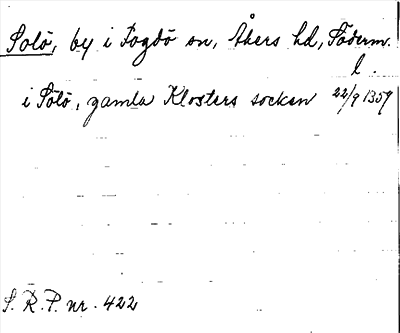 Solö, by i Fogdö sn, Åkers hd, Söderm.
l.
i Sölö, gamla Klosters socken 22/9 1359
S. R. P. nr. 422